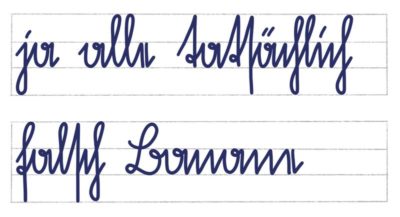 ja alle tatsächlich
falsch Banane